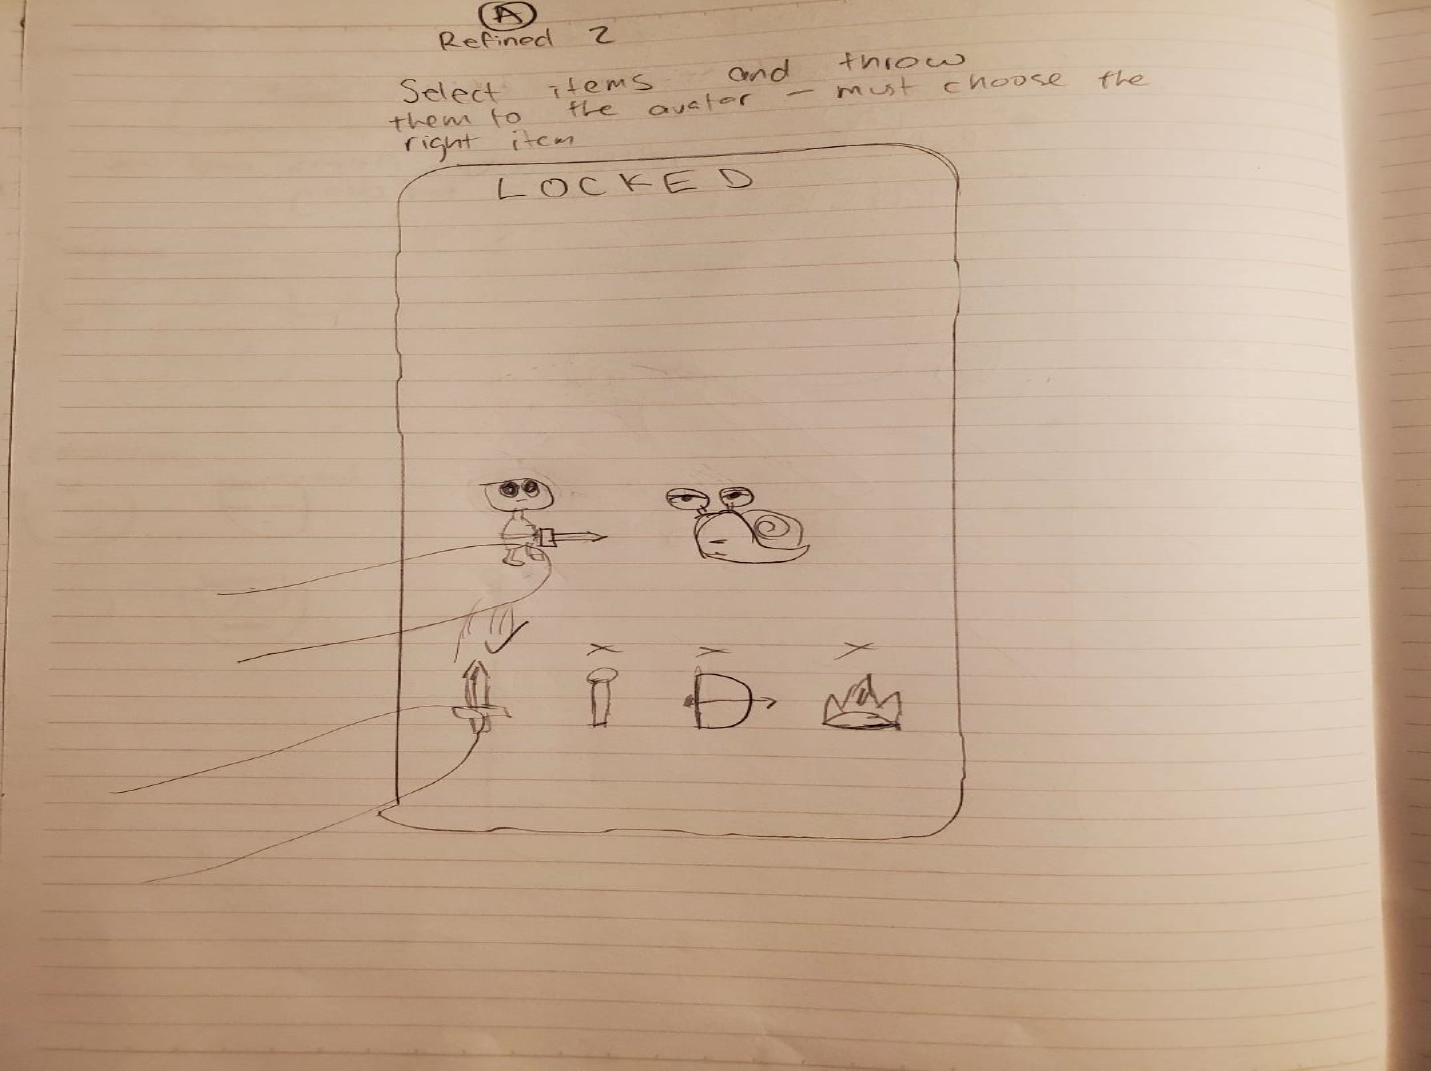 A
Refined 2
Select items and throw
them to the avatar - must choose the
right item
LOCKED